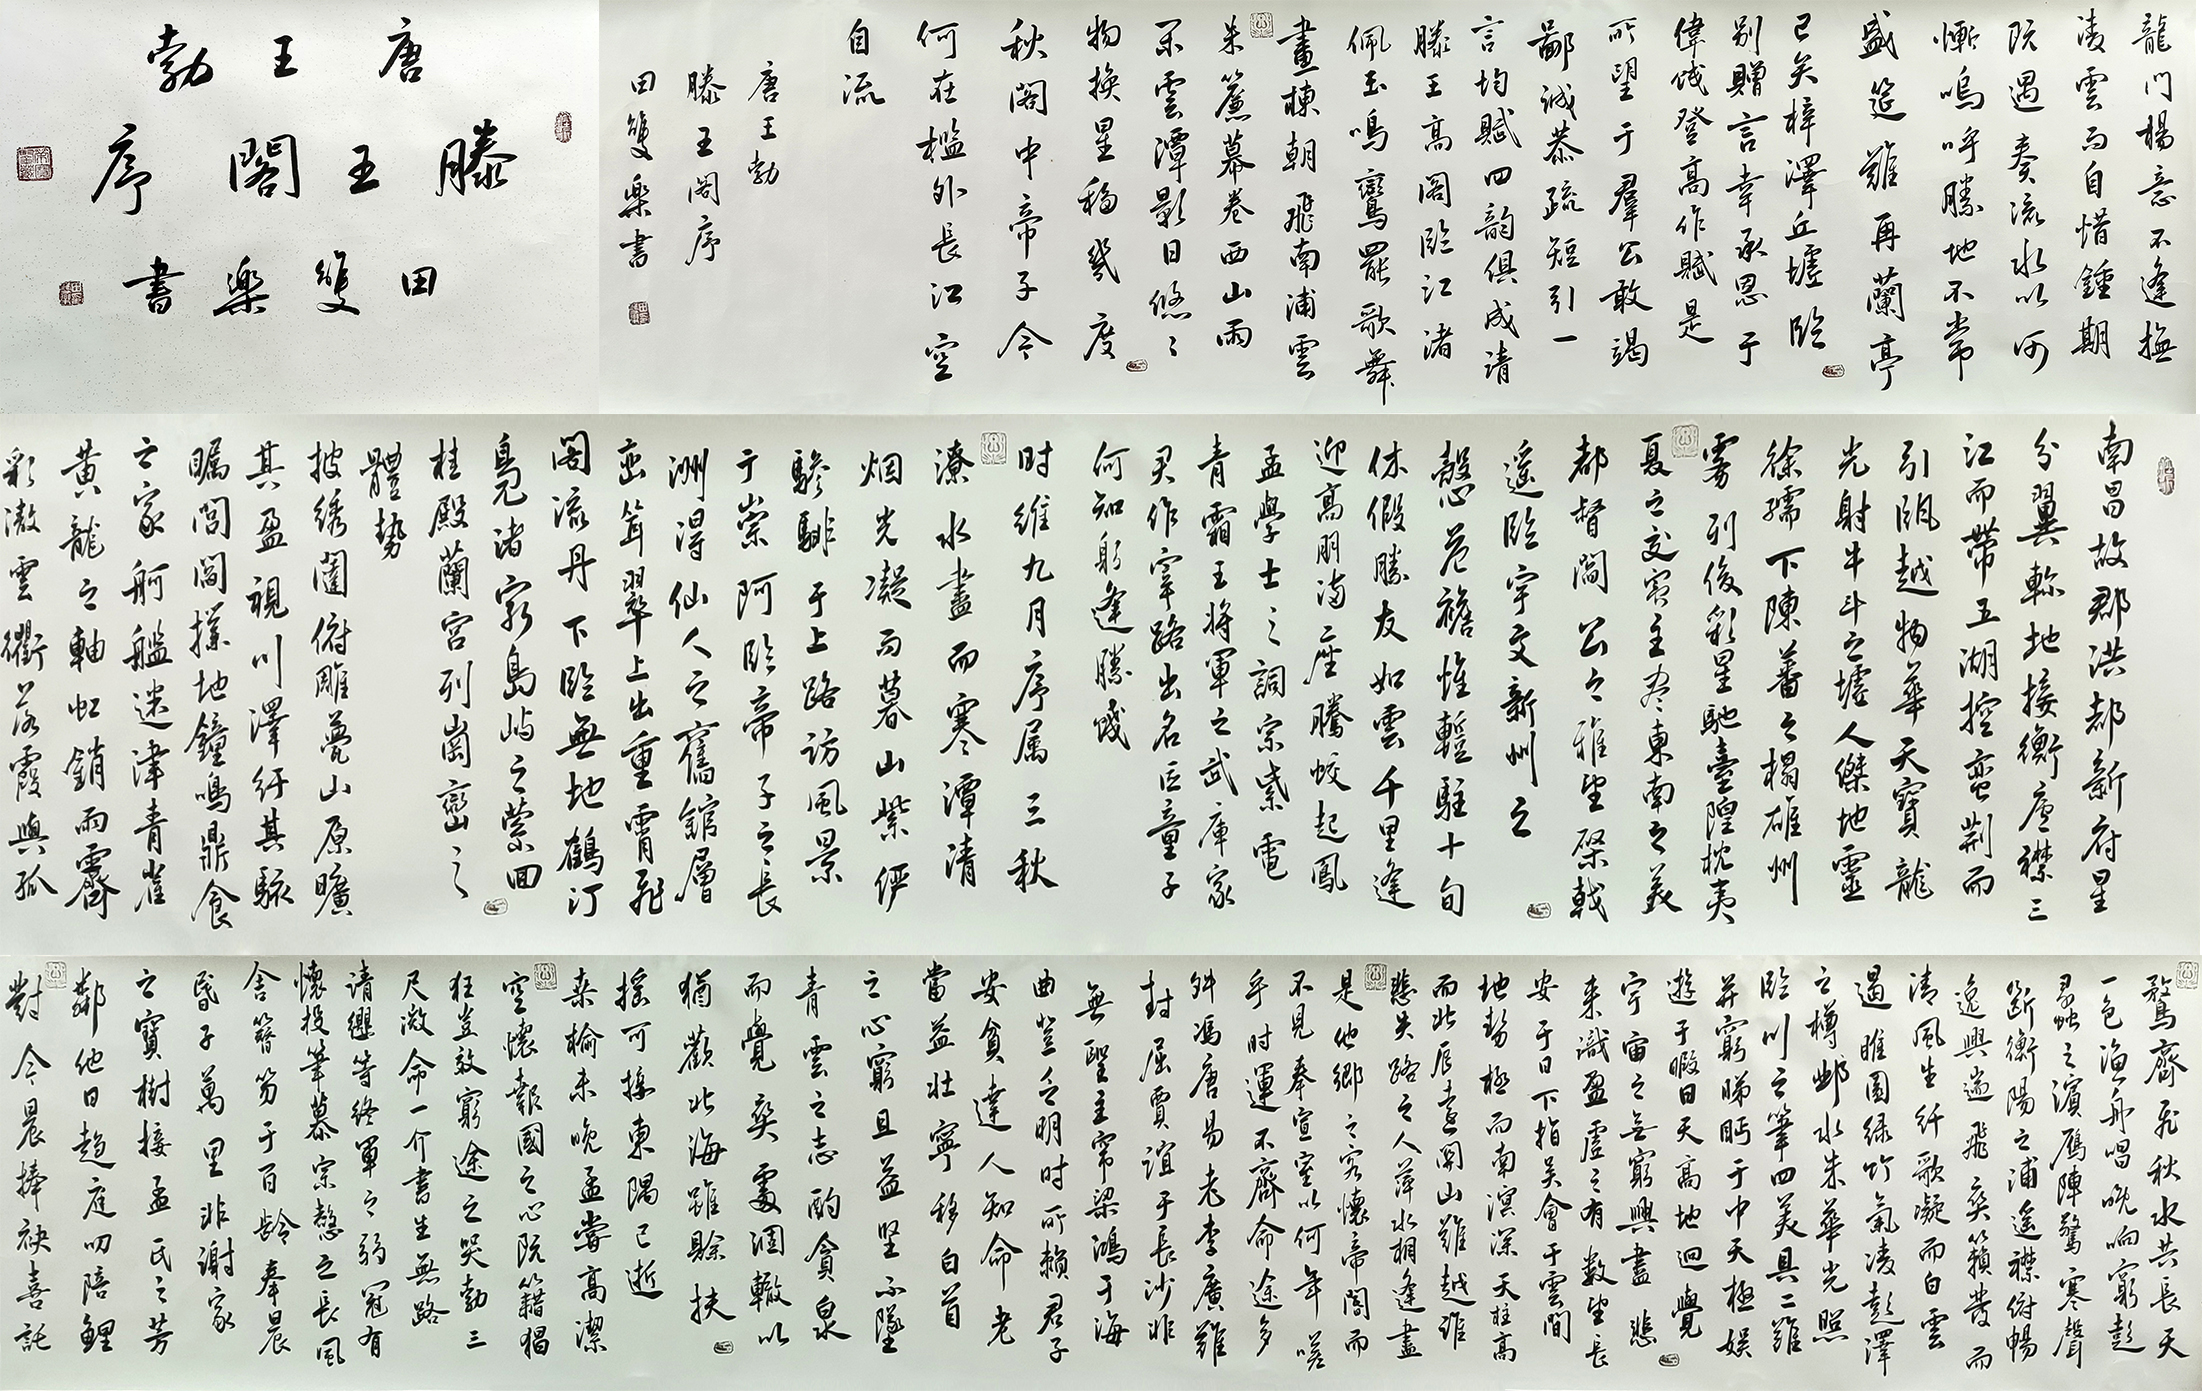 唐王勃
滕王閣序
田雙樂書
南昌故郡洪都新府星
分翼軫地接衡廬襟三
江而帶五湖控蛮荆而
引甌越物華天寶龍
光射牛斗之墟人傑地靈
徐孺下陳蕃之榻雄州
雾列俊彩星馳臺隍枕夷
夏之交賓主尽東南之美
都督閻公之雅望棨戟
遥臨宇文新州之
懿范襜惟暫駐十旬
休假勝友如雲千里逢
迎高朋满座騰蛟起鳳
孟學士之詞宗紫電
青霜王将軍之武庫家
君作宰路出名区童子
何知躬逢勝餞
时维九月序属三秋
潦水盡而寒潭清
烟光凝而暮山紫俨
驂騑于上路访風景
于崇阿臨帝子之長
洲得仙人之舊館層
峦耸翠上出重霄飛
阁流丹下臨無地鶴汀
鳧渚窮島屿之縈回
桂殿蘭宫列崗巒之
體勢
披绣闥俯雕甍山原曠
其盈視川澤紆其駭
矚閭閻撲地鐘鳴鼎食
之家舸艦迷津青雀
黄龍之軸虹銷雨霽
彩澈雲衢落霞與孤
鶩齊飛秋水共長天
一色渔舟唱晚响窮彭
蠡之濱雁陣驚寒聲
断衡陽之浦遥襟俯暢
逸興遄飛爽籟發而
清風生纤歌凝而白雲
遏睢園绿竹氣凌彭澤
之樽邺水朱華光照
臨川之筆四美具二難
并窮睇眄于中天極娱
遊于暇日天高地迥覺
宇宙之無窮興盡悲
来識盈虚之有数望長
安于日下指吴會于雲間
地勢極而南溟深天柱高
而北辰遠關山難越谁
悲失路之人萍水相逢盡
是他鄉之客懷帝閽而
不見奉宣室以何年嗟
乎时運不齊命途多
舛馮唐易老李廣難
封屈賈誼于長沙非
無聖主窜梁鴻于海
曲豈乏明时所赖君子
安貧達人知命老
當益壮寧移白首
之心窮且益坚不墜
青雲之志酌貪泉
而覺爽處涸轍以
猶歡北海雖賒扶
摇可接東隅已逝
桑榆未晚孟嘗高潔
空懷報國之心阮籍猖
狂豈效窮途之哭勃三
尺微命一介書生無路
请纓等终軍之弱冠有
懷投筆慕宗慤之長風
舍簪笏于百龄奉晨
昏于萬里非謝家
之寶樹接孟氏之芳
鄰他日趋庭叨陪鲤
對今晨捧袂喜託
龍门楊意不逢撫
凌雲而自惜鍾期
既遇奏流水以何
慚嗚呼勝地不常
盛筵難再蘭亭
已矣梓澤丘墟臨
别贈言幸承恩于
偉餞登高作賦是
所望于羣公敢竭
鄙诚恭疏短引一
言均賦四韵俱成请
滕王高阁臨江渚
佩玉鳴鸞罷歌舞
畫棟朝飛南浦雲
朱簾暮卷西山雨
闲雲潭影日悠々
物换星移幾度
秋阁中帝子今
何在檻外長江空
自流
唐王勃
滕王阁序
田雙樂書